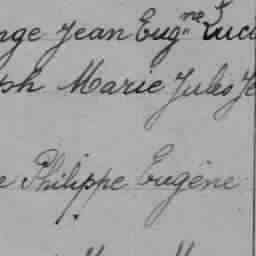 nge Jean Eug.ne Luci
ph Marie Jules Je
e Philippe Eugène